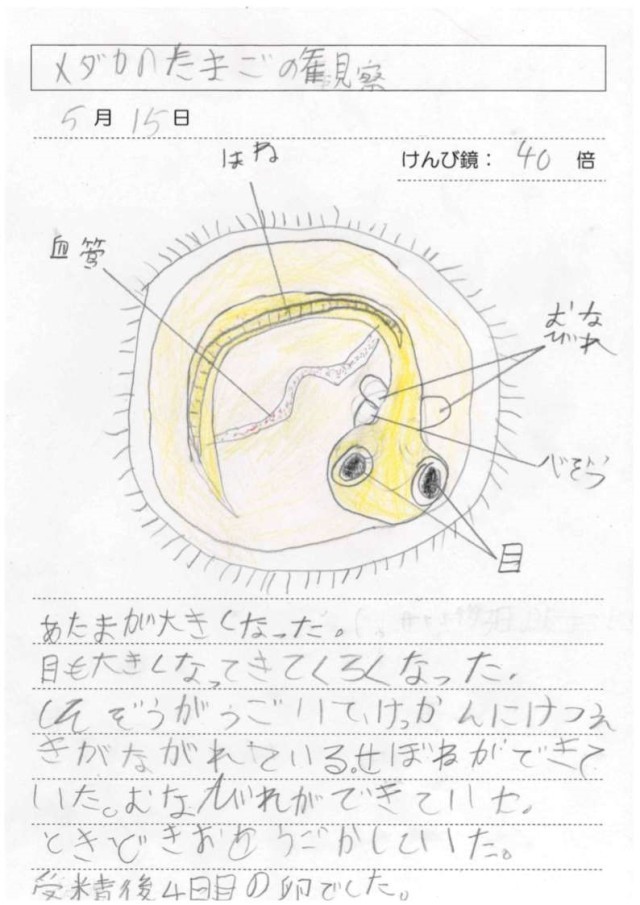 メダカのたまごの観察
5月15日
けんび鏡：40倍
ほね
血管
むなびれ
心ぞう
目
あたまが大きくなった。
目も大きくなってきてくろくなった。
しんぞうがうごいて、けっかんにけつえ
きがながれている。せぼねができて
いた。むなびれができていた。
ときどきおをうごかしていた。
受精後4日目の卵でした。